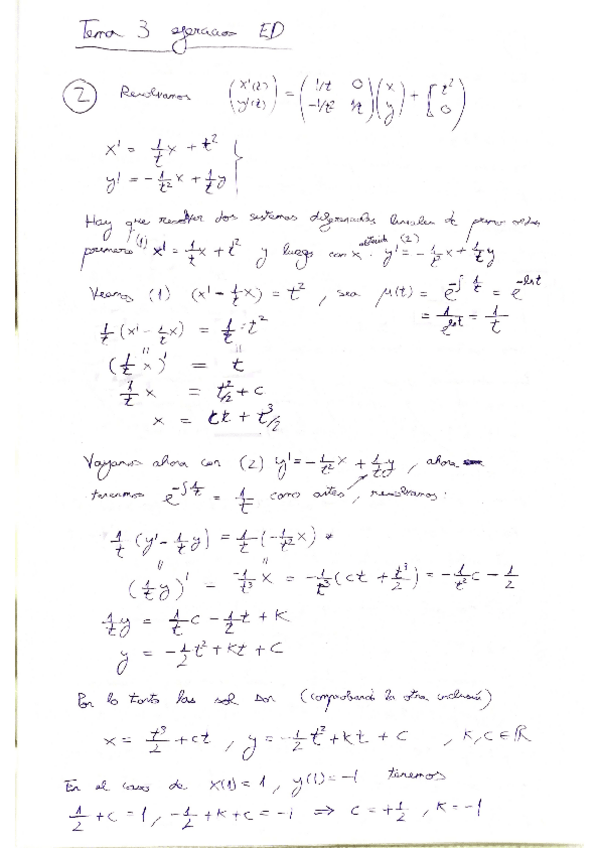 Tema 3 ejercicios ED
② Resolvamos (x'(t) y'(t)) = (1/t 0 -1/t² 1/t)(x y) + [t² 0)
x' = 1/t x + t²
y' = -1/t² x + 1/t y
Hay que resolver dos sistemas diferenciales lineales de primer orden
primero (1) x' = 1/t x + t² y luego con x obtenida (2) y' = -1/t² x + 1/t y
Veamos (1) (x' - 1/t x) = t², sea μ(t) = e^{-∫1/t} = e^{-log t}
= 1/e^{log t} = 1/t
1/t (x' - 1/t x) = 1/t · t²
(1/t x)' = t
1/t x = t²/2 + c
x = ct + t³/2
Vayamos ahora con (2) y' = -1/t² x + 1/t y, ahora
tenemos e^{-∫1/t} = 1/t como antes, resolvamos:
1/t (y' - 1/t y) = 1/t (-1/t² x)
(1/t y)' = -1/t³ x = -1/t³ (ct + t³/2) = -1/t² c - 1/2
1/t y = 1/t c - 1/2 t + K
y = -1/2 t² + Kt + C
Por lo tanto las sol son (comprobando la otra inclusión)
x = t³/2 + ct, y = -1/2 t² + kt + c, K, C ∈ ℝ
En el caso de x(1) = 1, y(1) = -1 tenemos
1/2 + c = 1, -1/2 + k + c = -1 ⇒ c = +1/2, K = -1